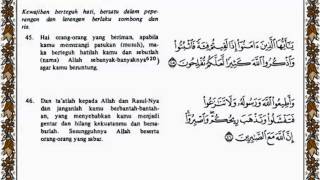 Kewajiban berteguh hati, bersatu dalam pepe-
rangan dan larangan berlaku sombong dan
ria.
45. Hai orang-orang yang beriman, apabila
kamu memerangi pasukan (musuh), ma-
ka berteguh hatilah kamu dan sebutlah
(nama) Allah sebanyak-banyaknya620)
agar kamu beruntung.
يَٰٓأَيُّهَا ٱلَّذِينَ ءَامَنُوٓا۟ إِذَا لَقِيتُمْ فِئَةً فَٱثْبُتُوا۟
وَٱذْكُرُوا۟ ٱللَّهَ كَثِيرًا لَّعَلَّكُمْ تُفْلِحُونَ
46. Dan ta'atlah kepada Allah dan Rasul-Nya
dan janganlah kamu berbantah-bantah-
an, yang menyebabkan kamu menjadi
gentar dan hilang kekuatanmu dan bersa-
barlah. Sesungguhnya Allah beserta
orang-orang yang sabar.
وَأَطِيعُوا۟ ٱللَّهَ وَرَسُولَهُۥ وَلَا تَنَٰزَعُوا۟
فَتَفْشَلُوا۟ وَتَذْهَبَ رِيحُكُمْ وَٱصْبِرُوٓا۟
إِنَّ ٱللَّهَ مَعَ ٱلصَّٰبِرِينَ